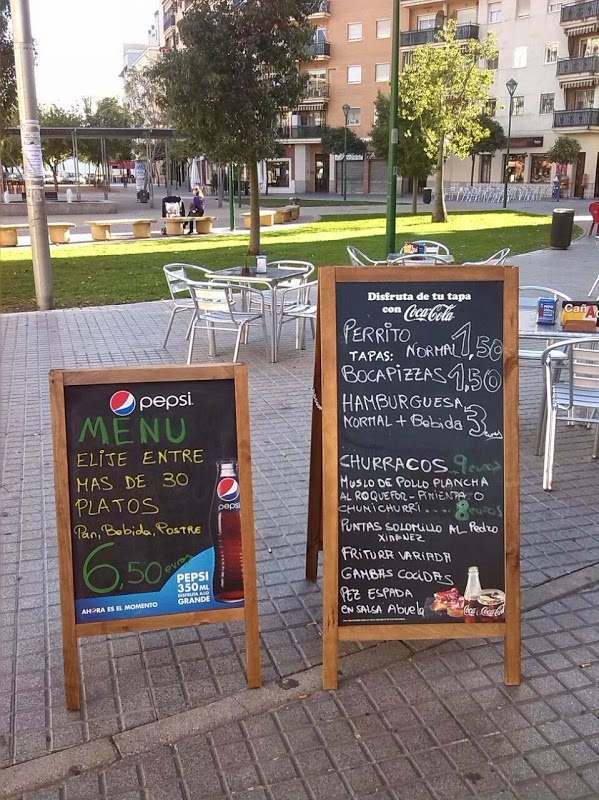 pepsi
MENU
ELIJE ENTRE
MAS DE 30
PLATOS
Pan, Bebida, Postre
6,50 euros
pepsi
PEPSI
350 ML
DISFRUTA A LO
GRANDE
AHORA ES EL MOMENTO
Disfruta de tu tapa
con Coca-Cola
PERRITO
TAPAS: NORMAL 1,50
BOCAPIZZAS 1,50
HAMBURGUESA
NORMAL + Bebida 3 euros
CHURRACOS...9 euros
MUSLO DE POLLO PLANCHA
AL ROQUEFOR - PIMIENTA O
CHIMICHURRI.... 8 euros
PUNTAS SOLOMILLO AL PEDRO
XIMENEZ
FRITURA VARIADA
GAMBAS COCIDAS
PEZ ESPADA
EN SALSA Abuela
Coca-Cola